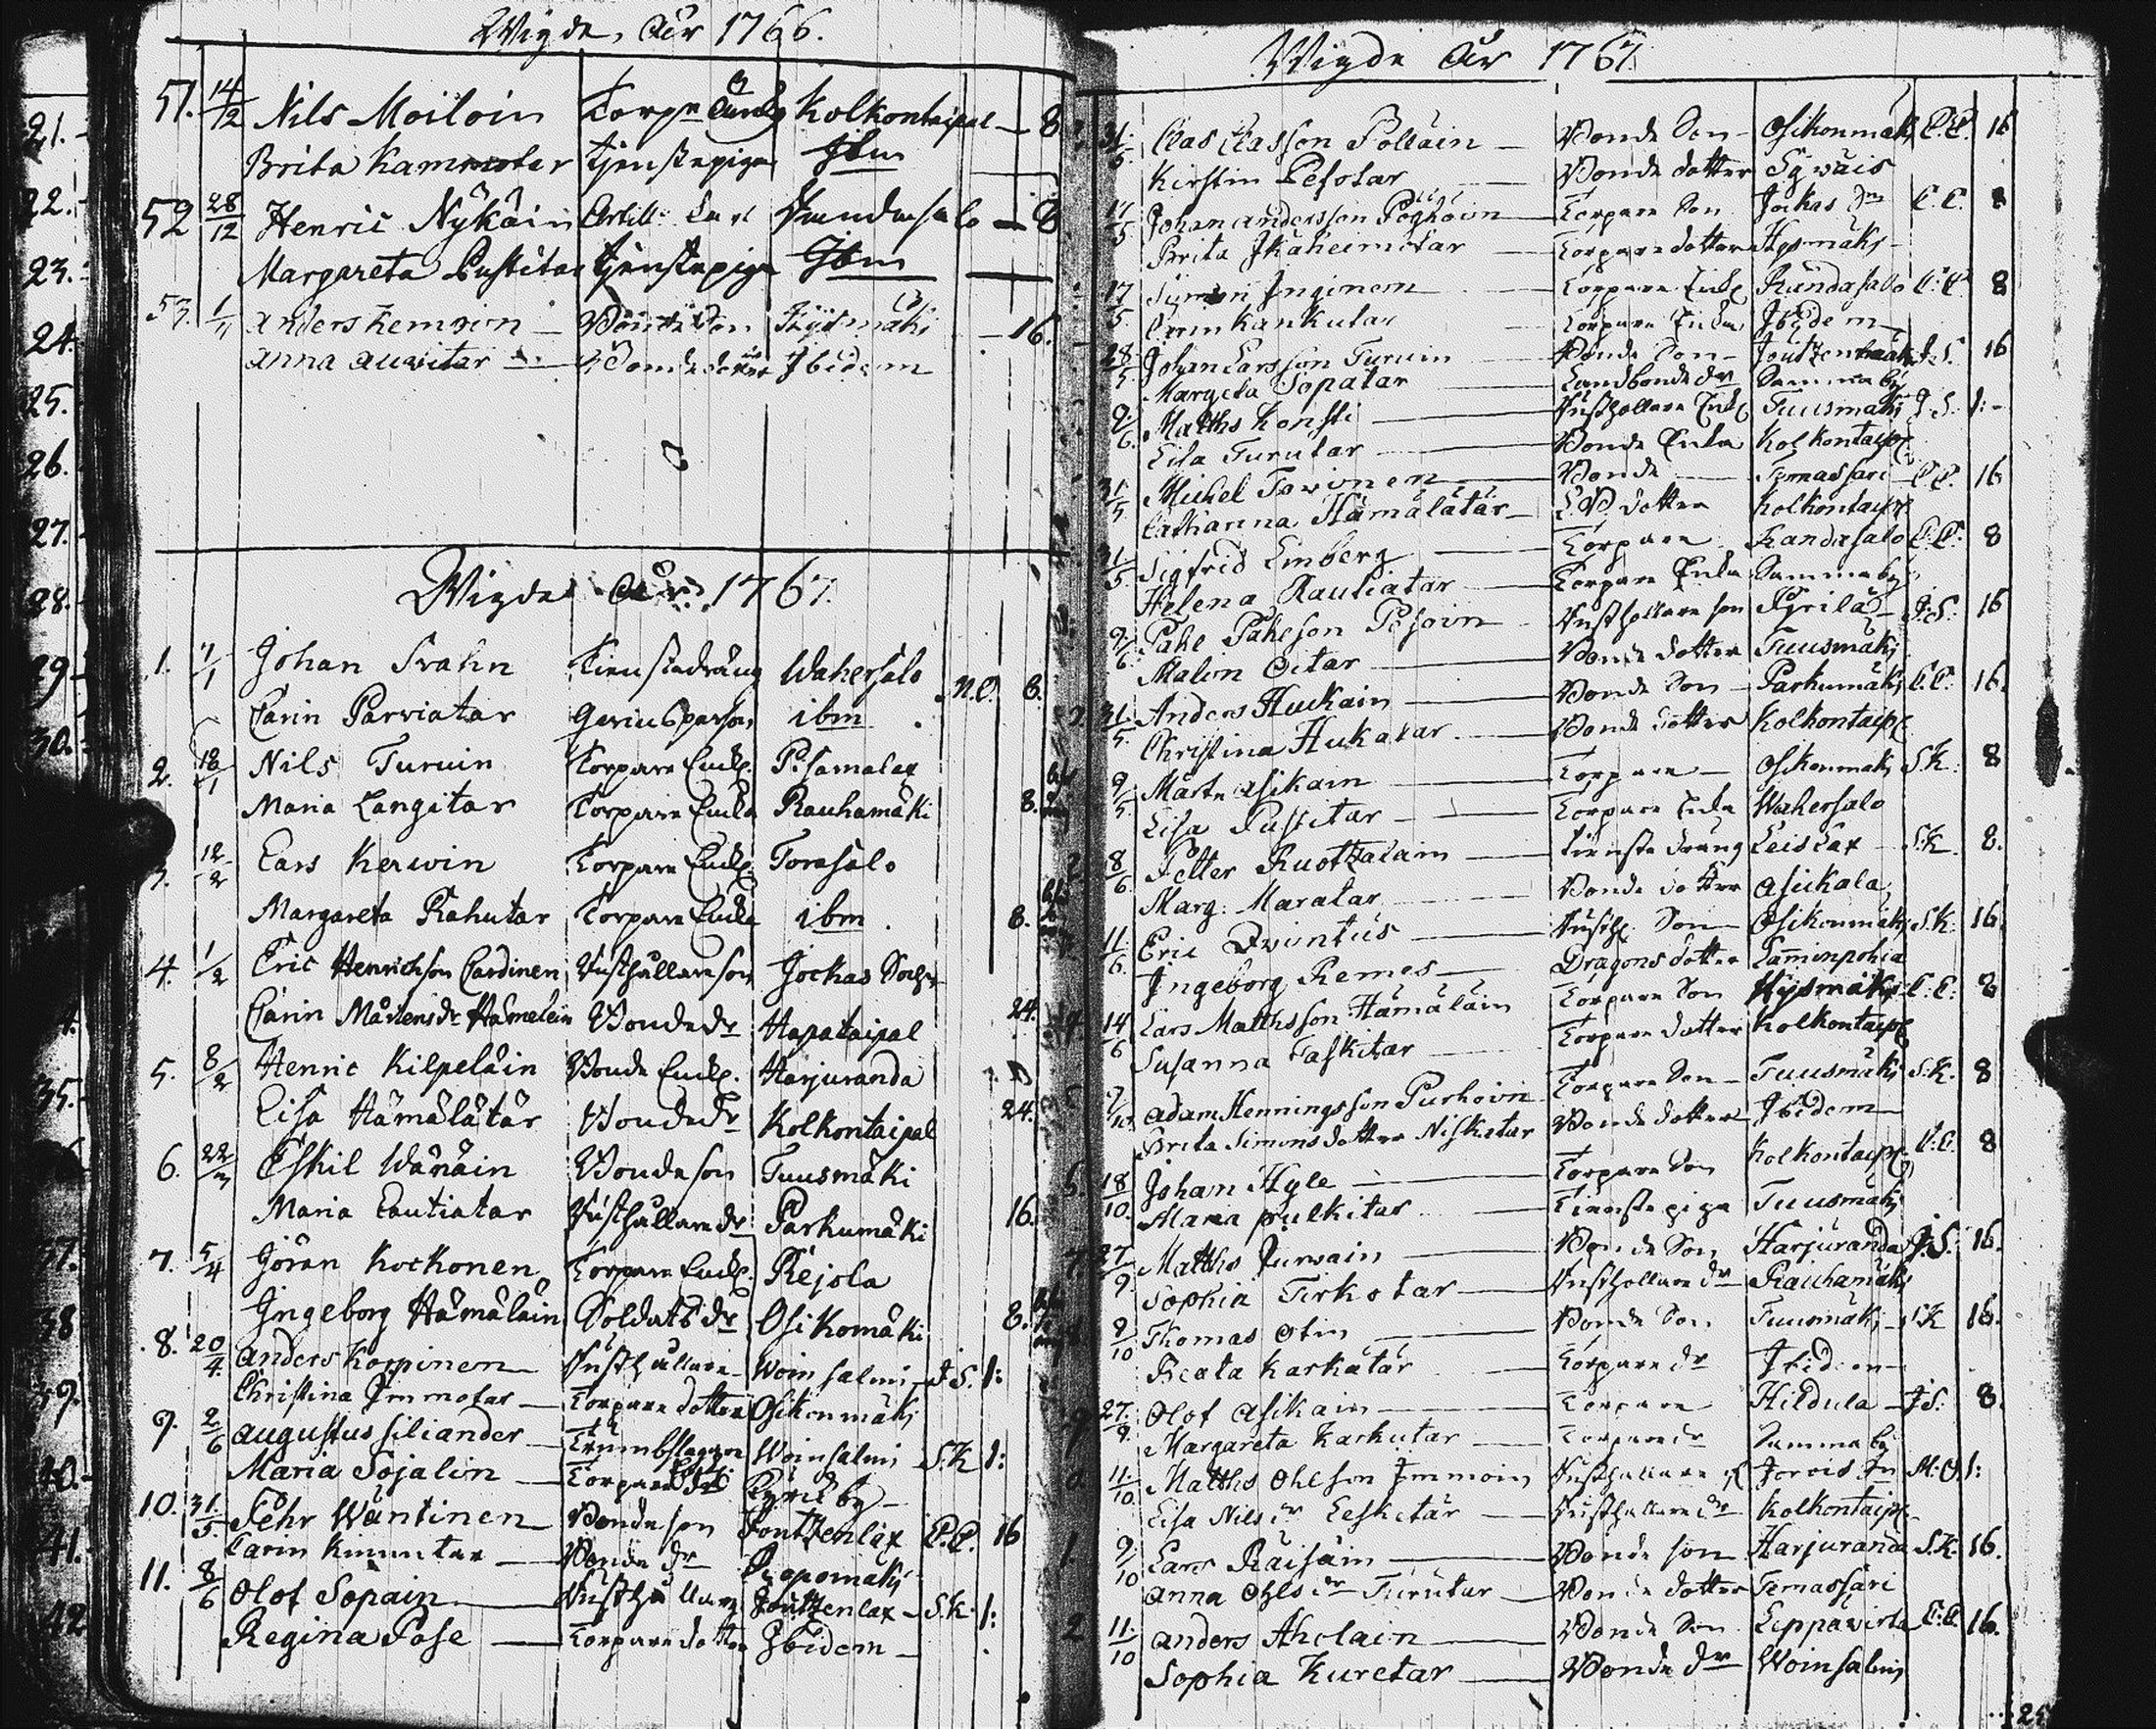 Wigde, År 1766.
51. 14/12 Nils Moiloin Torp Enk Kolkontaipal - 8
Brita Kammotar tjenstepiga Ibm
52 28/12 Henric Nykäin Artill: Randasalo - 8
Margareta Pustitar tjenstepiga Ibm
53. 1/11 Anders Kemroin - Bonde Son Hysmäki - 16.
Anna Auvitar Bonde dotter Ibidem
Wigde År 1767.
1. 1/1 Johan Svahn Tienstedräng Wahersalo N.O. 8.
Carin Parviatar ibm
2. 18/1 Nils Turuin Torpare Enkl. Pisamalax
Maria Langitar Torpare Enka Rauhamäki 8.
3. 12/2 Lars Kerwin Torpare Enkl. Torasalo
Margareta Rahutar Torpare Enka ibm. 8.
4. 1/2 Eric Henrichson Cardinen Rusthållareson Jockas Sochn
Carin Mårtensdr Hämeläin Bondedr Hapataipal 24.
5. 8/2 Henric Kilpeläin Bonde Enkl. Harjuranda
Lisa Hämälätär Bondedr Kolkontaipal 24.
6. 22/3 Eskil Wänäin Bondeson Tuusmäki
Maria Lautiatar Rusthållaredr Parkumäki 16.
7. 5/4 Jöran Kockonen Torpare Enkl. Rejola
Ingeborg Hämäläin Soldats dr Osikomäki 8.
8. 20/4 Anders Korpinen Rusthållare Woinsalmi - J.S. 1:
Christina Immotar - Torpare dotter Osikonmäki
9. 2/6 Augustus Siliander - Trumbslagare Woinsalmi S.K 1:
Maria Sojalin - Torpare
10. 31/5 Pehr Wäntinen Bonde son Joutzenlax C.C. 16
Carin Bonde dr
11. 8/6 Olof Sopain - Rusthållare Joutzenlax - S.K. 1:
Regina Pose - Torpare dotter Ibidem -
Wigde År 1767
31/5 Clas Classon Pölläin - Bonde Son - Osikonmäki C.C. 16
Kirstin Pesotar Bonde dotter
17/5 Johan Andersson Pöyhöin - Torpare Son Jockas Sn C.C. 8
Brita Ikäheimotar Torpare dotter Hysmäki -
17/5 Simon Inginem Torpare Enkl Randasalo C.C. 8
Carin Kankutar Torpare Enka Ibidem
28/5 Johan Larsson Turuin Bonde Son - J.S. 16
Margeta Sopatar Landbonde dr Samma by
9/6 Matths Konsti Rusthållare Enkl Tuusmäki J.S. 1:-
Lisa Turutar Bonde Enka Kolkontaipl
31/5 Michel Tarvonen Bonde Temassari C.C. 16
Catharina Hämälätär - L.B. dotter Kolkontaipl
31/5 Sigfrid Emberg Torpare Randasalo C.C. 8
Helena Rautiatar Torpare Enka Samma by
9/6 Påhl Påhlson Pesoin Rusthållare son Pyrilä - J.S. 16
Malin Oitar Bonde dotter Tuusmäki
31/5 Anders Huckain Bonde Son - Parkumäki C.C. 16.
Christina Hukatar Bonde dotter Kolkontaipl
9/5 Mårten Asikain Torpare - Osikonmäki S.K. 8
Lisa Pustitar - Torpare Enka Wahersalo
8/6 Petter Ruottzalain Tienste dräng Leislax S.K. 8.
Marg. Maratar Bonde dotter Asickala
11/6 Eric Rusth. Son Osikonmäki S.K. 16
Ingeborg Remes Dragons dotter Lamminpohia
14/6 Lars Matthsson Hämäläin Torpare Son Hysmäki C.C. 8
Susanna Taskitar Torpare dotter Kolkontaipl
9/10 Adam Henningsson Purhoin Torpare Son - Tuusmäki S.K. 8
Brita Simonsdotter Niskatar Bonde dotter Ibidem
18/10 Johan Hyle Torpare Son Kolkontaipl C.C. 8
Maria Pulkitar Tienste piga Tuusmäki
27/9 Matths Jurvain Bonde Son Harjuranda J.S. 16.
Sophia Tirkotar Rusthållare dr Rauhamäki
9/10 Thomas Otin Bonde Son Tuusmäki - S.K 16.
Beata Karkatar Torpare dr Ibidem
27/9 Olof Asikain Torpare Hildula - J.S. 8
Margareta Karkutar Torpare dr Samma by
11/10 Matths Ohlsson Immoin Rusthållare Jorois Sn M.O. 1:
Lisa Nils dr Lesketar Rusthållare dr Kolkontaipl
9/10 Lars Räisäin Bonde son Harjuranda S.K. 16.
Anna Ohls dr Turutar Bonde dotter Temassari
11/10 Anders Aholain Bonde Son Leppavirta C.C. 16.
Sophia Kuretar Bonde dr Woinsalmi